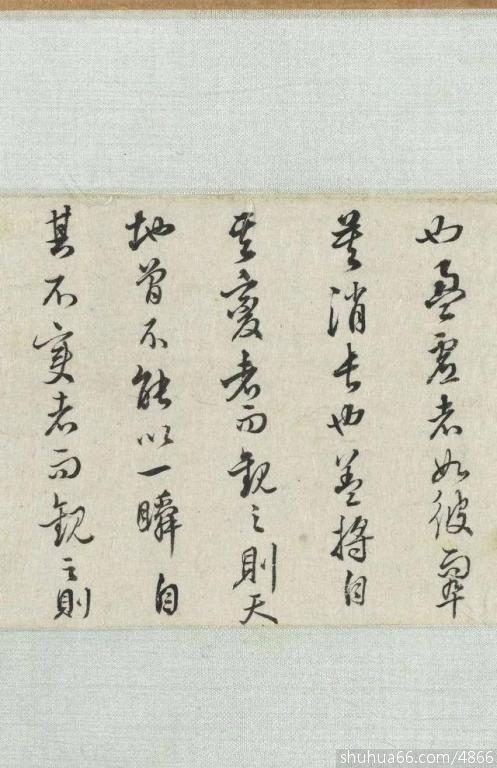 也盈虛者如彼而卒
莫消長也盖將自
其變者而觀之則天
地曾不能以一瞬自
其不變者而觀之則
shuhua66.com/4866